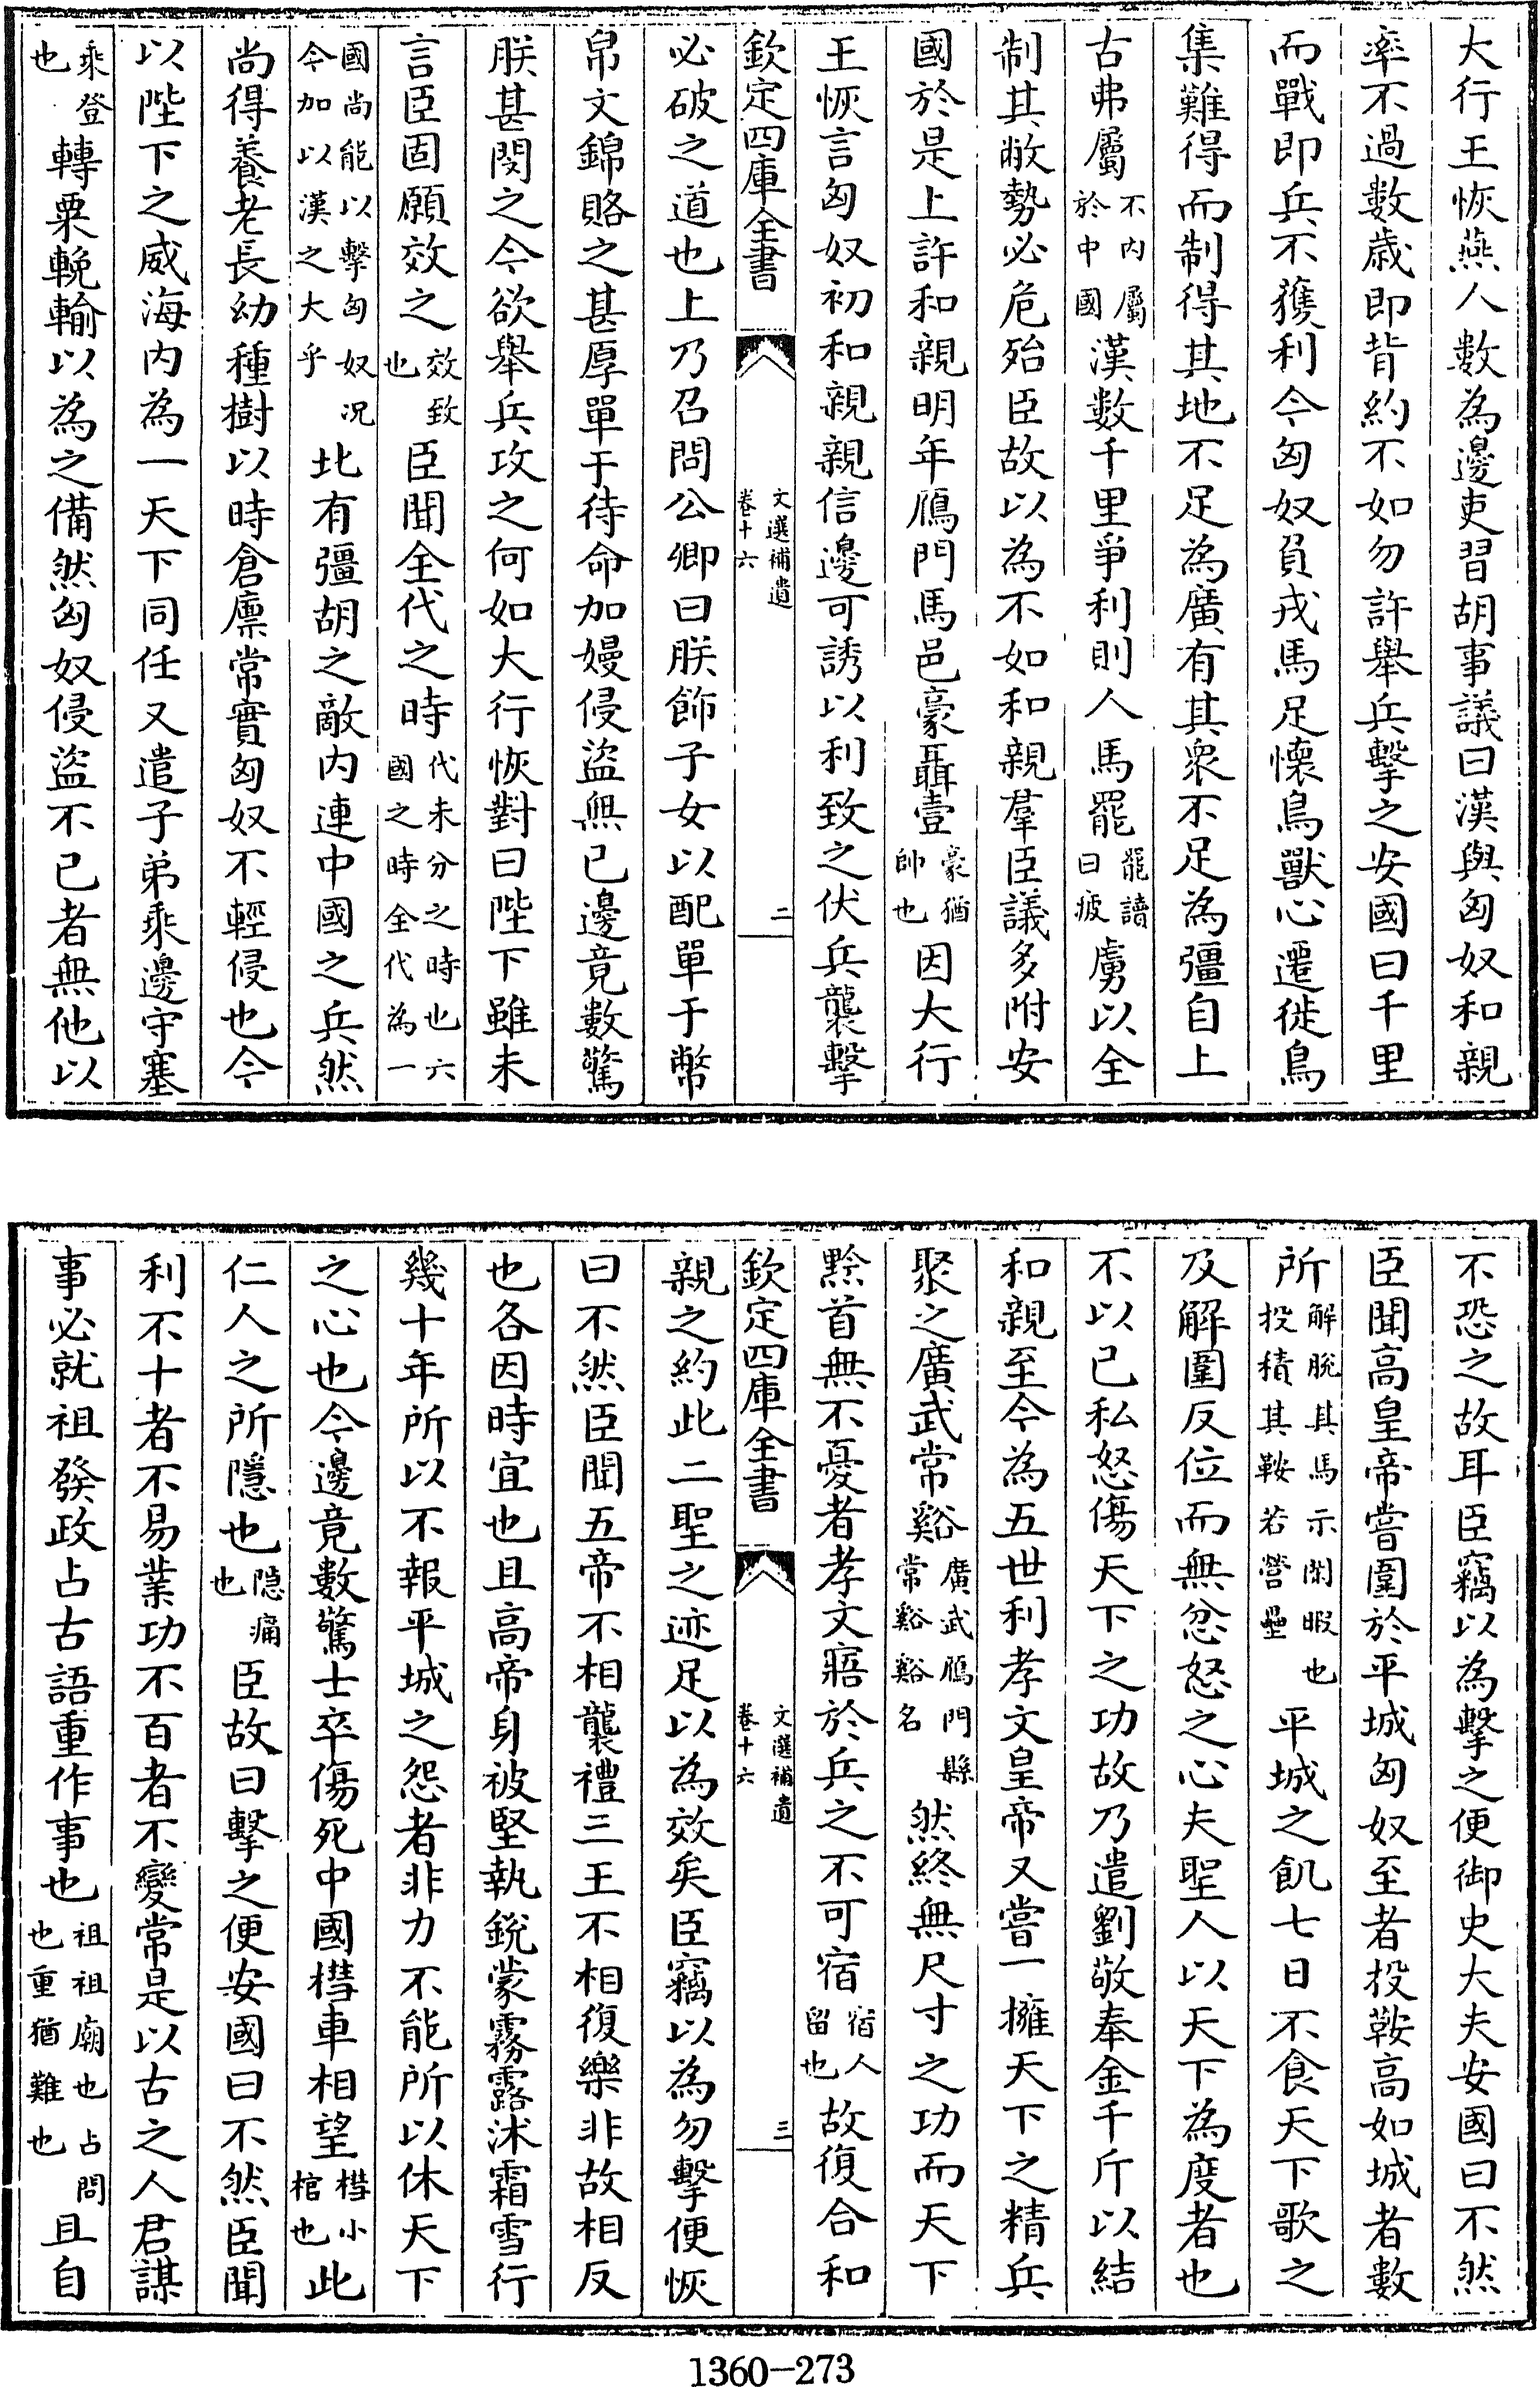 大行王恢燕人數為邊吏習胡事議曰漢與匈奴和親
率不過數歲即背約不如勿許舉兵擊之安國曰千里
而戰即兵不獲利今匈奴負戎馬足懷鳥獸心遷徙鳥
集難得而制得其地不足為廣有其衆不足為彊自上
古弗屬不内屬於中國漢數千里爭利則人馬罷罷讀曰疲虜以全
制其敝勢必危殆臣故以為不如和親羣臣議多附安
國於是上許和親明年鴈門馬邑豪聶壹豪猶帥也因大行
王恢言匈奴初和親親信邊可誘以利致之伏兵襲擊
欽定四庫全書 文選補遺卷十六 二
必破之道也上乃召問公卿曰朕飾子女以配單于幣
帛文錦賂之甚厚單于待命加嫚侵盜無已邊竟數驚
朕甚閔之今欲舉兵攻之何如大行恢對曰陛下雖未
言臣固願效之效致也臣聞全代之時代未分之時也六國之時全代為一
國尚能以擊匈奴况今加以漢之大乎北有彊胡之敵内連中國之兵然
尚得養老長幼種樹以時倉廪常實匈奴不輕侵也今
以陛下之威海内為一天下同任又遣子弟乘邊守塞
乘登也轉粟輓輸以為之備然匈奴侵盜不已者無他以
不恐之故耳臣竊以為擊之便御史大夫安國曰不然
臣聞高皇帝嘗圍於平城匈奴至者投鞍高如城者數
所解脫其馬示閑暇也投積其鞍若營壘平城之飢七日不食天下歌之
及解圍反位而無忿怒之心夫聖人以天下為度者也
不以已私怒傷天下之功故乃遣劉敬奉金千斤以結
和親至今為五世利孝文皇帝又嘗一擁天下之精兵
聚之廣武常谿廣武鴈門縣常谿谿名然終無尺寸之功而天下
黔首無不憂者孝文寤於兵之不可宿宿人留也故復合和
欽定四庫全書 文選補遺卷十六 三
親之約此二聖之迹足以為效矣臣竊以為勿擊便恢
曰不然臣聞五帝不相襲禮三王不相復樂非故相反
也各因時宜也且高帝身被堅執銳蒙霧露沐霜雪行
幾十年所以不報平城之怨者非力不能所以休天下
之心也今邊竟數驚士卒傷死中國槥車相望槥小棺也此
仁人之所隱也隱痛也臣故曰擊之便安國曰不然臣聞
利不十者不易業功不百者不變常是以古之人君謀
事必就祖發政占古語重作事也祖祖廟也占問也重猶難也且自
1360-273